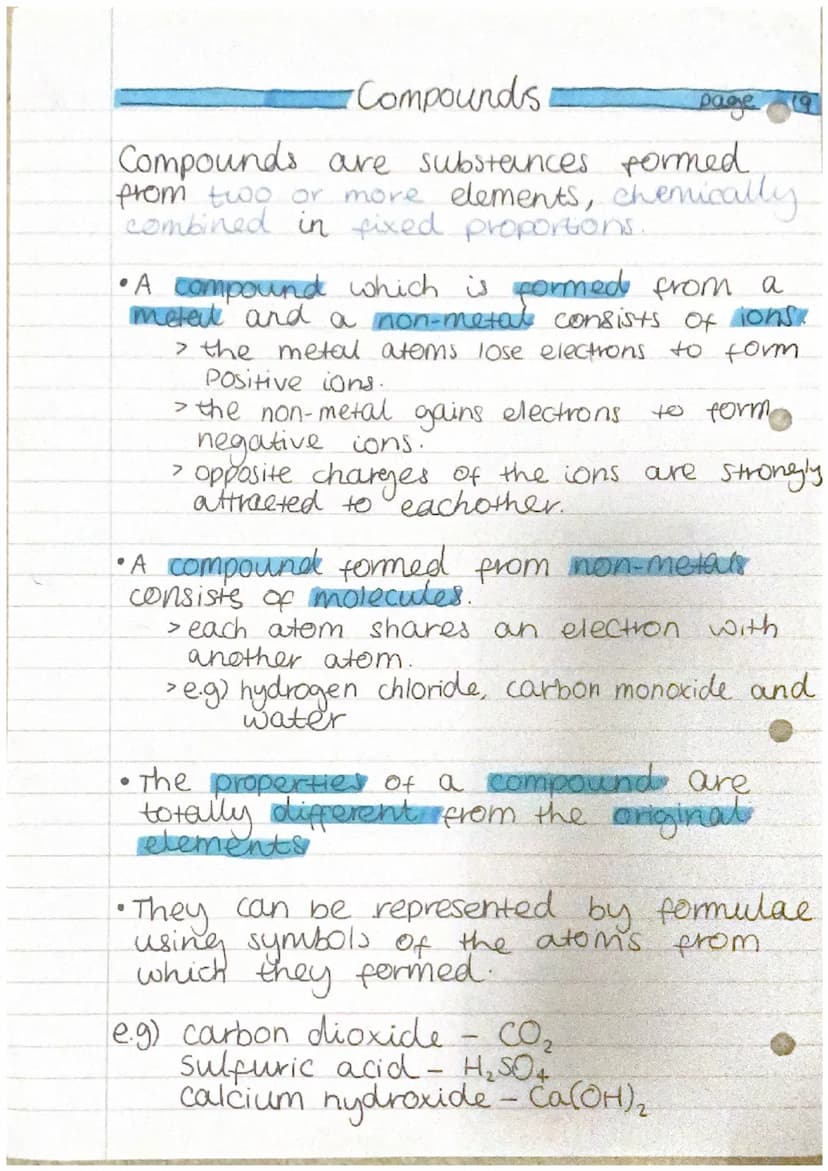 Compounds page 19
Compounds are substances formed
from two or more elements, chemically
combined in fixed proportions.
• A compound which is formed from a
metal and a non-metal consists of ions.
> the metal atoms lose electrons to form
Positive ions.
> the non-metal gains electrons to form
negative ions.
> opposite charges of the ions are strongly
attracted to eachother.
• A compound formed from non-metals
consists of molecules.
> each atom shares an electron with
another atom.
> e.g) hydrogen chloride, carbon monoxide and
water
• The properties of a compound are
totally different from the original
elements
• They can be represented by formulae
using symbols of the atoms from
which they formed.
e.g) carbon dioxide - CO₂
Sulfuric acid - H₂SO₄
calcium hydroxide - Ca(OH)₂